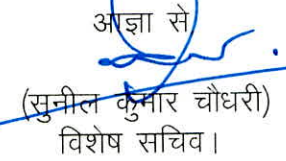 आज्ञा से
(सुनील कुमार चौधरी)
विशेष सचिव।